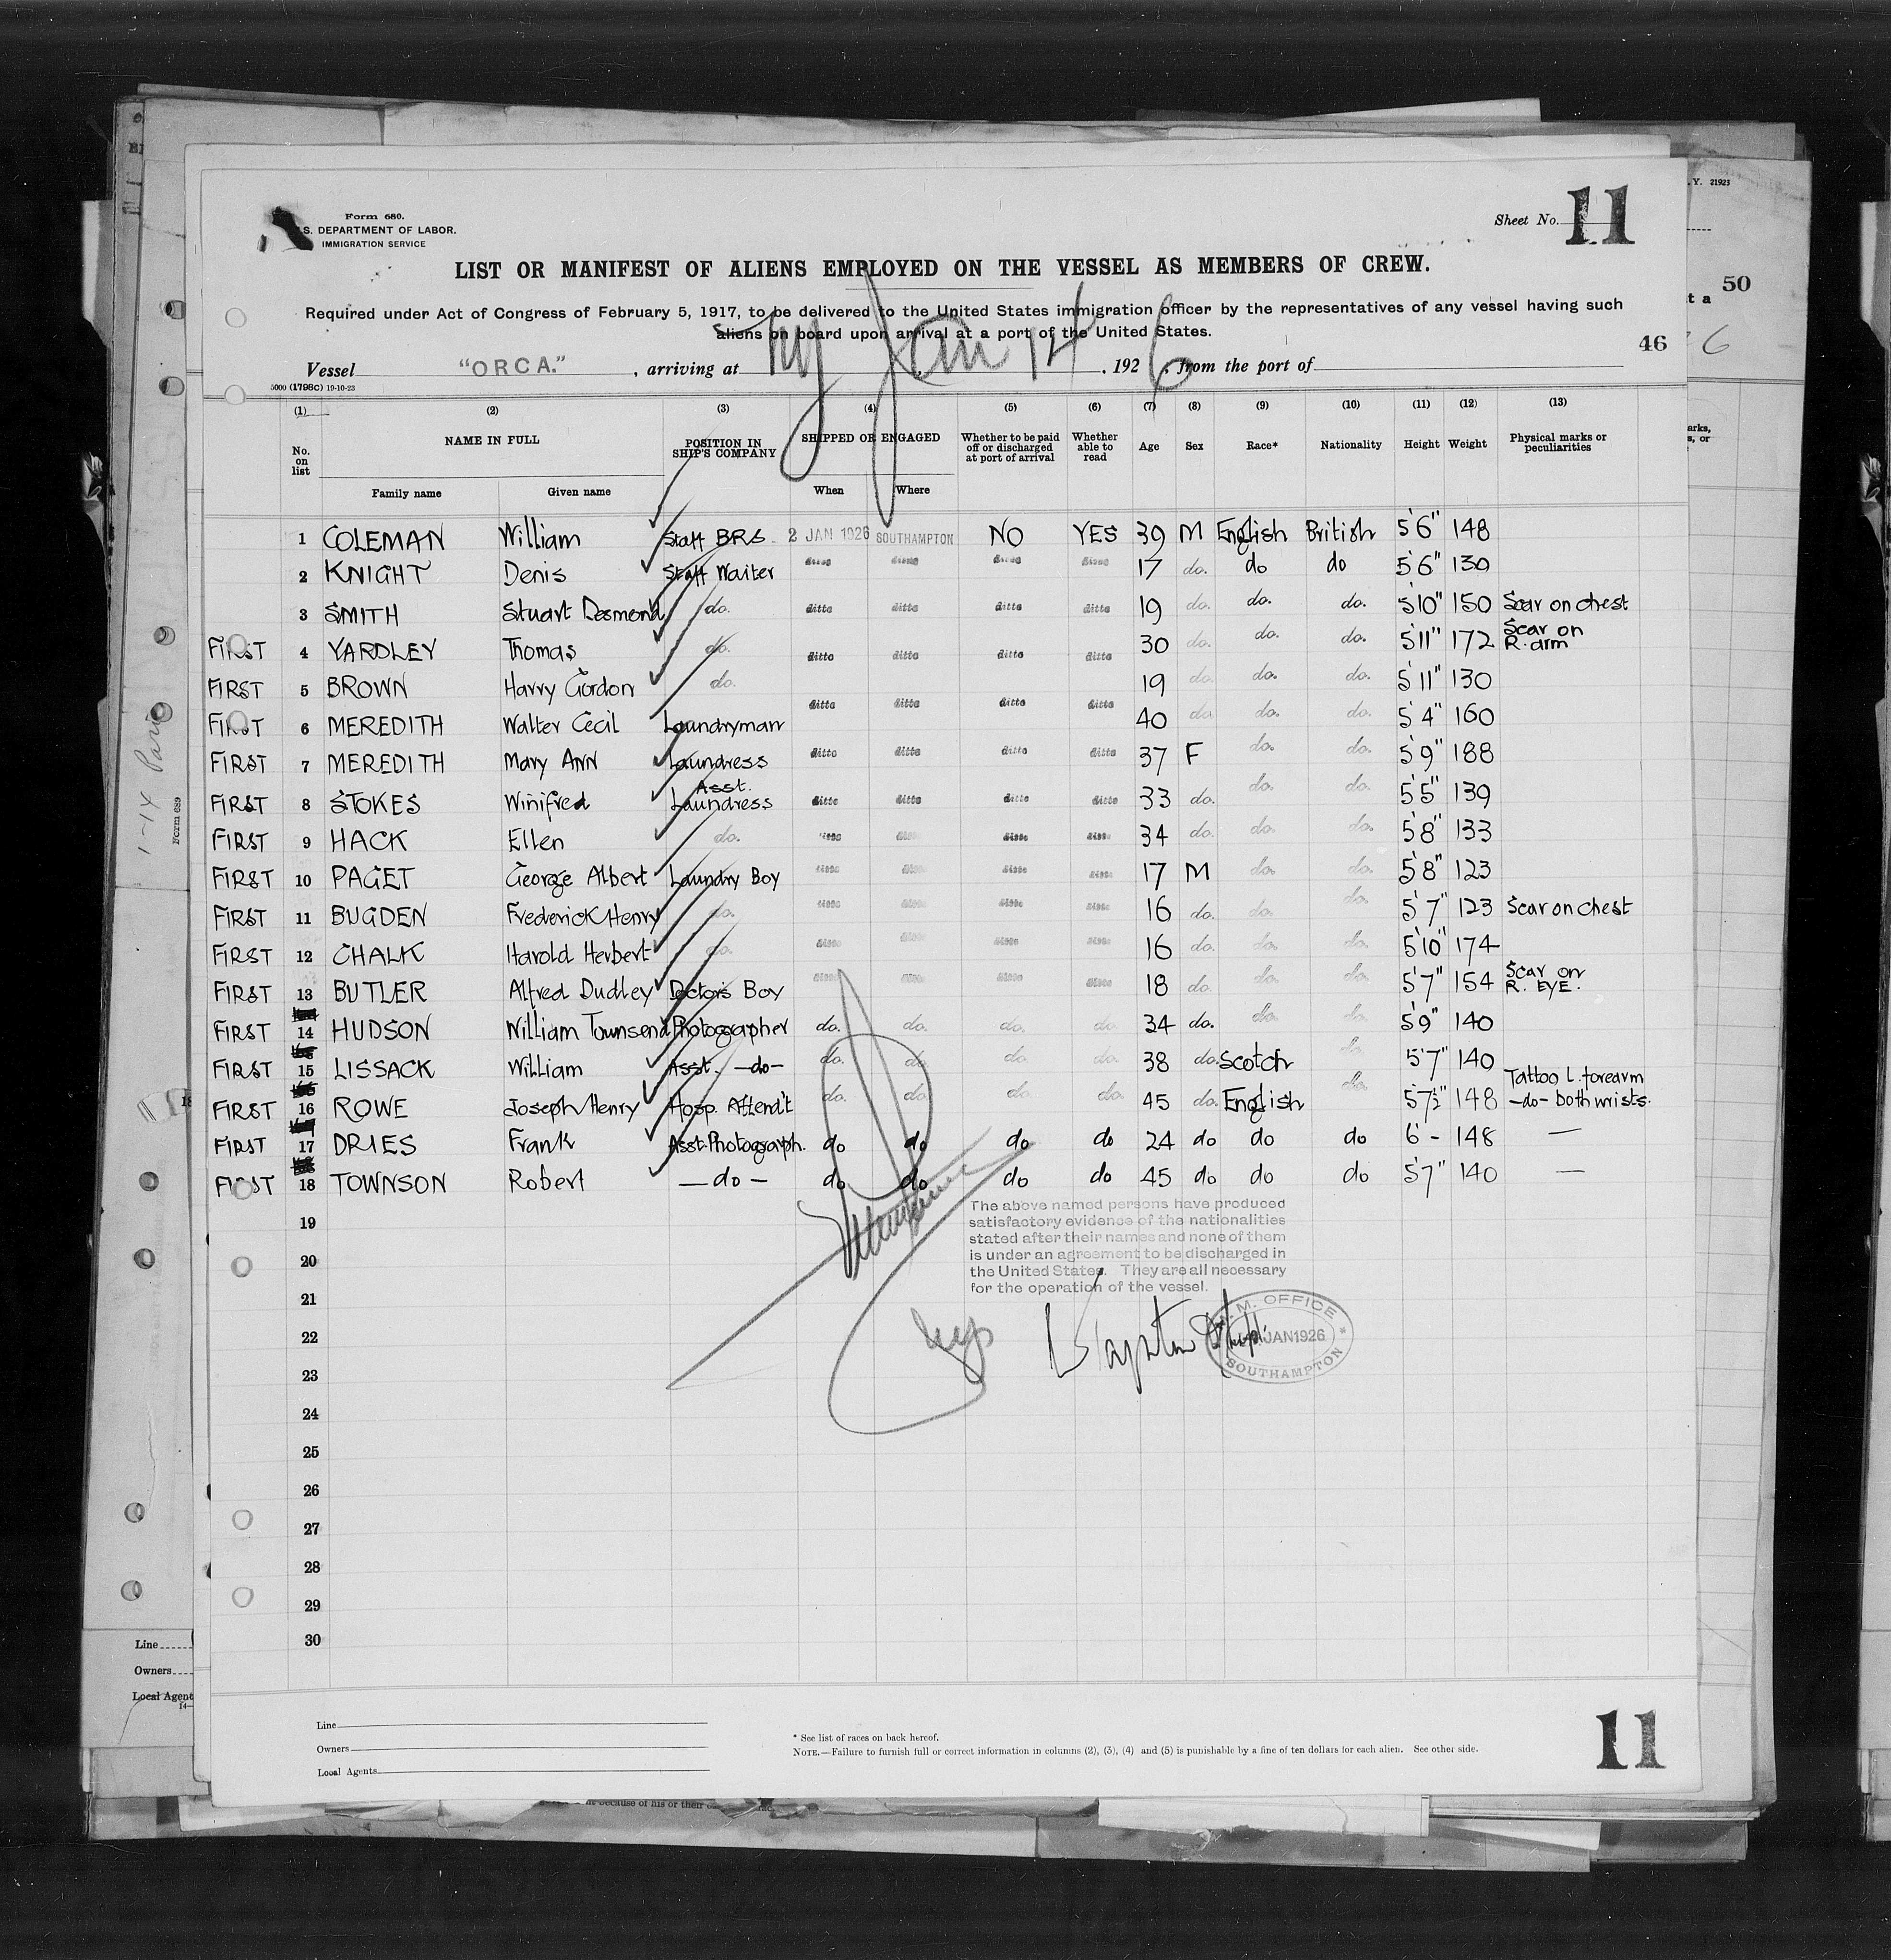 Form 680.
S. DEPARTMENT OF LABOR.
IMMIGRATION SERVICE
Sheet No. 11
LIST OR MANIFEST OF ALIENS EMPLOYED ON THE VESSEL AS MEMBERS OF CREW.
Required under Act of Congress of February 5, 1917, to be delivered to the United States immigration officer by the representatives of any vessel having such
aliens on board upon arrival at a port of the United States.
46
Vessel "ORCA." , arriving at NY Jan 14 , 1926 , from the port of
5000 (1798C) 19-10-23
(1) (2) (3) (4) (5) (6) (7) (8) (9) (10) (11) (12) (13)
No. on list NAME IN FULL POSITION IN SHIP'S COMPANY SHIPPED OR ENGAGED Whether to be paid off or discharged at port of arrival Whether able to read Age Sex Race* Nationality Height Weight Physical marks or peculiarities
Family name Given name When Where
1 COLEMAN William Staff BRS. 2 JAN 1926 SOUTHAMPTON NO YES 39 M English British 5'6" 148
2 KNIGHT Denis Staff Waiter ditto ditto ditto ditto 17 do. do do 5'6" 130
3 SMITH Stuart Desmond do. ditto ditto ditto ditto 19 do. do. do. 5'10" 150 Scar on chest
FIRST 4 YARDLEY Thomas do. ditto ditto ditto ditto 30 do. do. do. 5'11" 172 Scar on R. arm
FIRST 5 BROWN Harry Gordon do. 19 do. do. do. 5'11" 130
FIRST 6 MEREDITH Walter Cecil Laundryman ditto ditto ditto ditto 40 do do. do. 5'4" 160
FIRST 7 MEREDITH Mary Ann Laundress ditto ditto ditto ditto 37 F do. do. 5'9" 188
FIRST 8 STOKES Winifred Asst. Laundress ditto ditto ditto ditto 33 do. do. do. 5'5" 139
FIRST 9 HACK Ellen do. ditto ditto ditto ditto 34 do. do. do. 5'8" 133
FIRST 10 PAGET George Albert Laundry Boy ditto ditto ditto ditto 17 M do. do. 5'8" 123
FIRST 11 BUGDEN Frederick Henry do. ditto ditto ditto ditto 16 do. do. do. 5'7" 123 Scar on chest
FIRST 12 CHALK Harold Herbert do. ditto ditto ditto ditto 16 do. do. do. 5'10" 174
FIRST 13 BUTLER Alfred Dudley Doctor's Boy ditto ditto ditto ditto 18 do. do. do. 5'7" 154 Scar on R. EYE.
FIRST 14 HUDSON William Townsend Photographer do. do. do. do. 34 do. do. do. 5'9" 140
FIRST 15 LISSACK William Asst. —do— do. do. do. do. 38 do. Scotch do. 5'7" 140
FIRST 16 ROWE Joseph Henry Hosp. Attend't do. do. do. do. 45 do. English do. 5'7½" 148 Tattoo L. forearm —do— Both wrists.
FIRST 17 DRIES Frank Asst. Photograph. do do do do 24 do do do 6 - 148 —
FIRST 18 TOWNSON Robert — do — do do do do 45 do do do 5'7" 140 —
19
20
21
22
23
24
25
26
27
28
29
30
The above named persons have produced
satisfactory evidence of the nationalities
stated after their names and none of them
is under an agreement to be discharged in
the United States. They are all necessary
for the operation of the vessel.
M. OFFICE
JAN 1926
SOUTHAMPTON
Line
Owners
Local Agents
* See list of races on back hereof.
NOTE.—Failure to furnish full or correct information in columns (2), (3), (4) and (5) is punishable by a fine of ten dollars for each alien. See other side.
11
.Y. 21923
50
t a
6
1-14 Paris
Form 689
Line
Owners
Local Agent